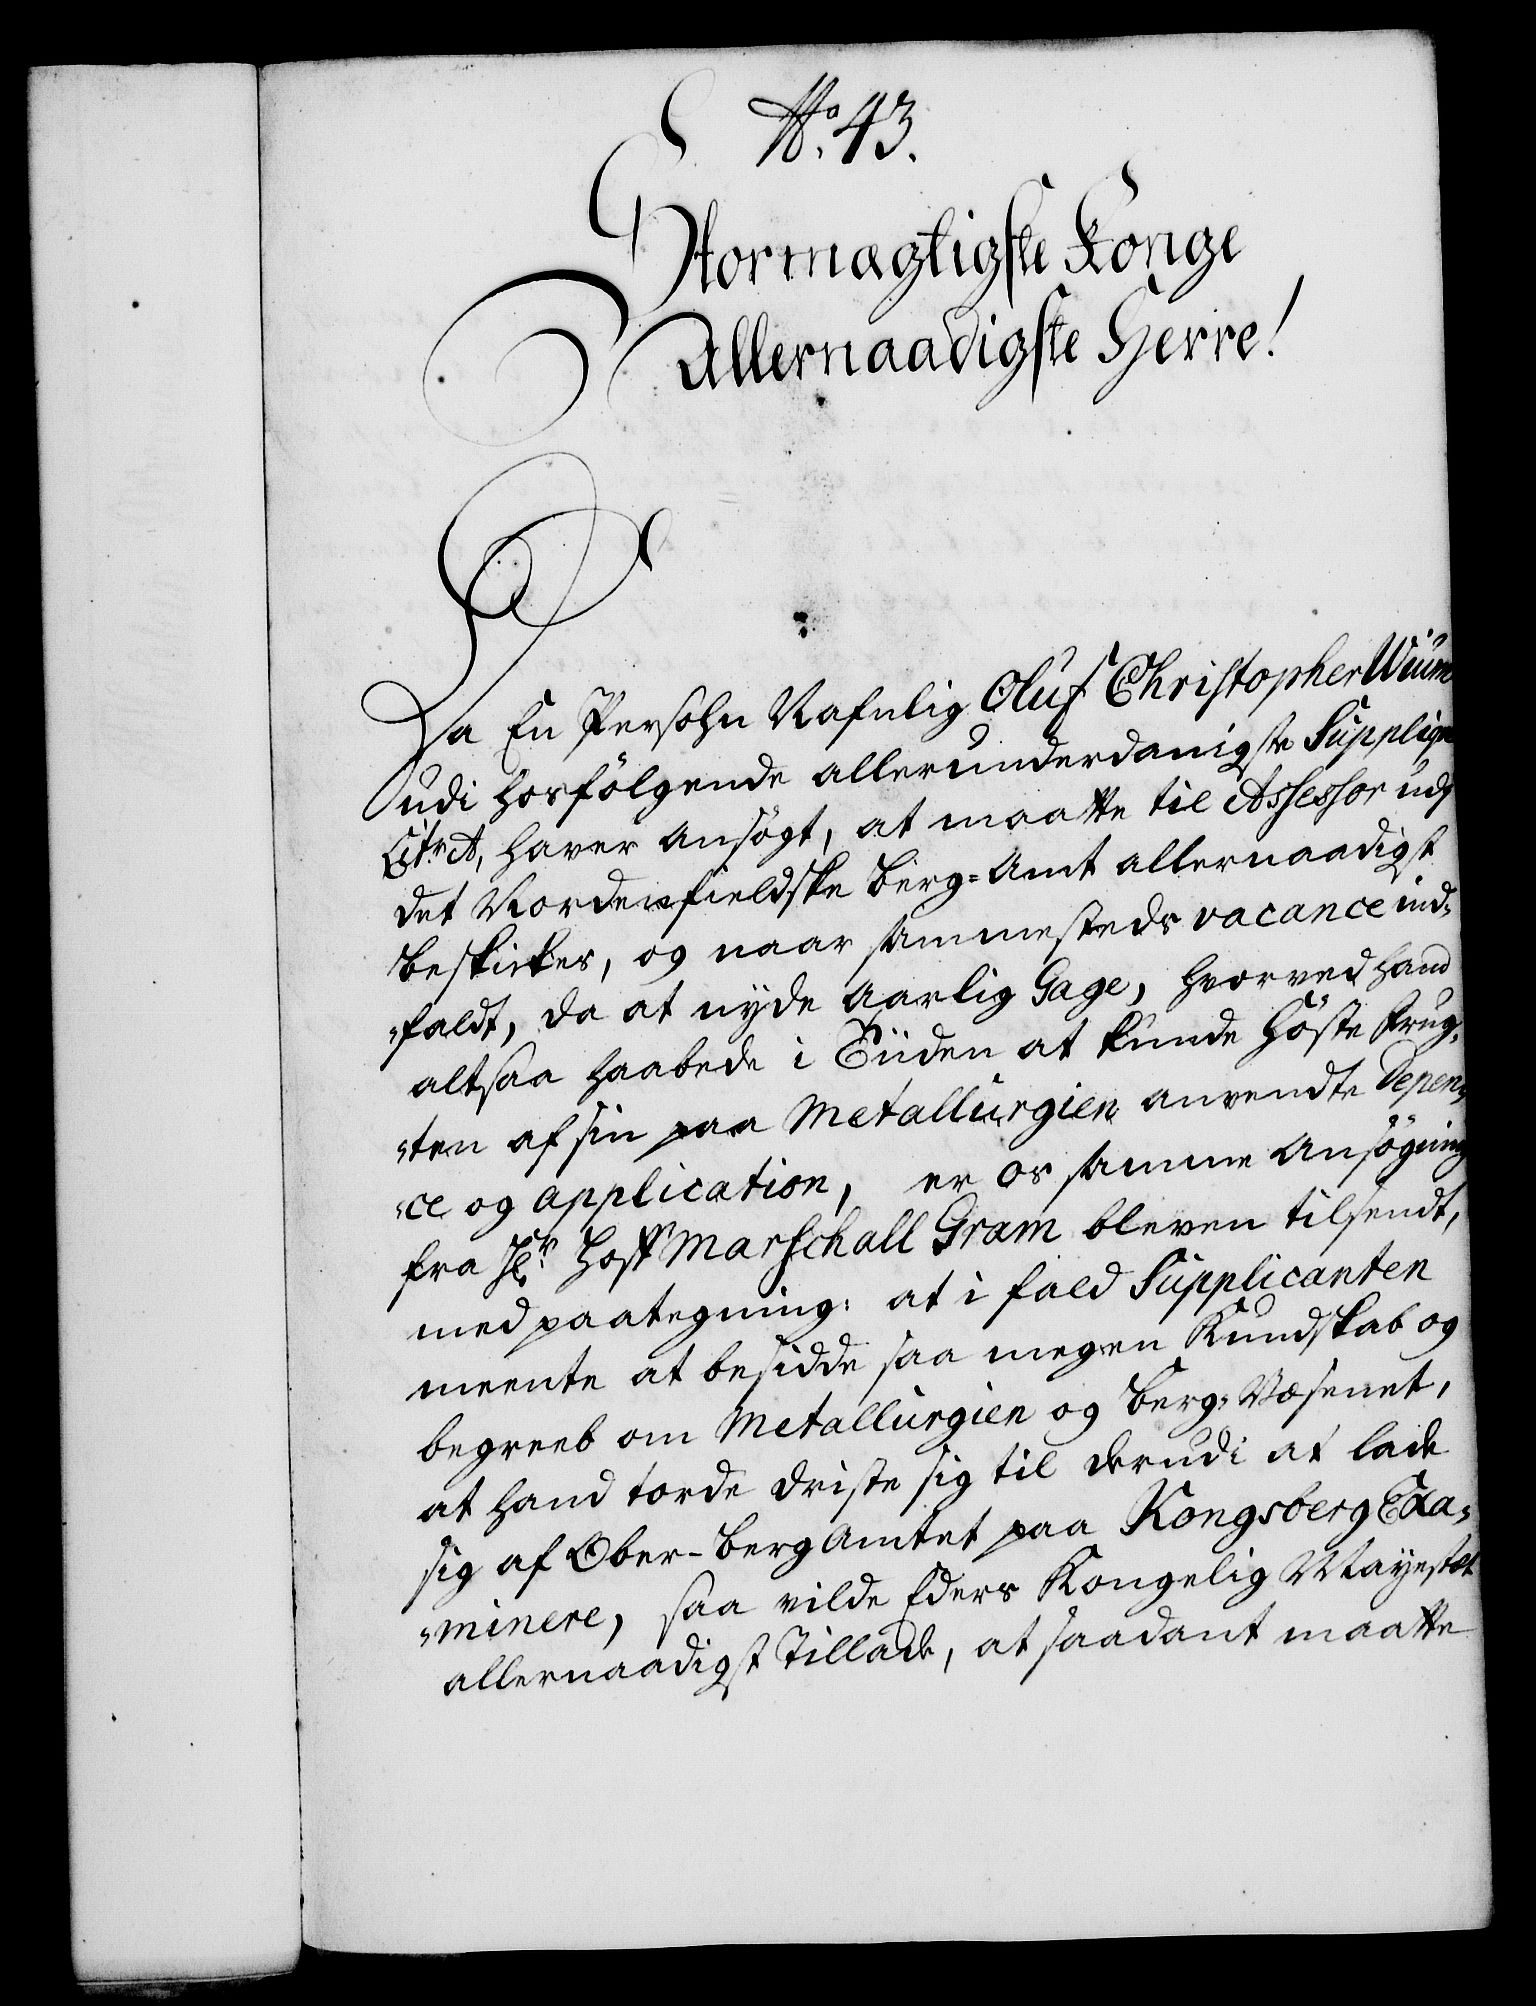 No. 43.
Stormægtigste Konge
Allernaadigste Herre!
Da En Persohn Nafnlig Oluf Christopher Wium
udi hosfölgende allerunderdanigste Suppliqve
Litr. A, haver ansögt, at maatte til Assessor udj
det Nordenfieldske Berg-Amt allernaadigst
beskikkes, og naar sammesteds vacance ind-
-faldt, da at nyde Aarlig Gage, hvorved hand
altsaa haabede i Tiiden at kunde höste Frug-
-ten af sin paa Metallurgien anvendte Depen-
-ce og application, er os samme Ansögning
fra Hr. Hoff Marschall Gram bleven tilsendt,
med paategning: at i fald Supplicanten
meente at besidde saa megen Kundskab og
begreeb om Metallurgien og Berg-Væsenet,
at hand torde driste sig til derudi at lade
sig af Ober-Berg Amtet paa Kongsberg Exa-
-minere, saa vilde Eders Kongelig Mayestæt
allernaadigst Tillade, at saadant maatte